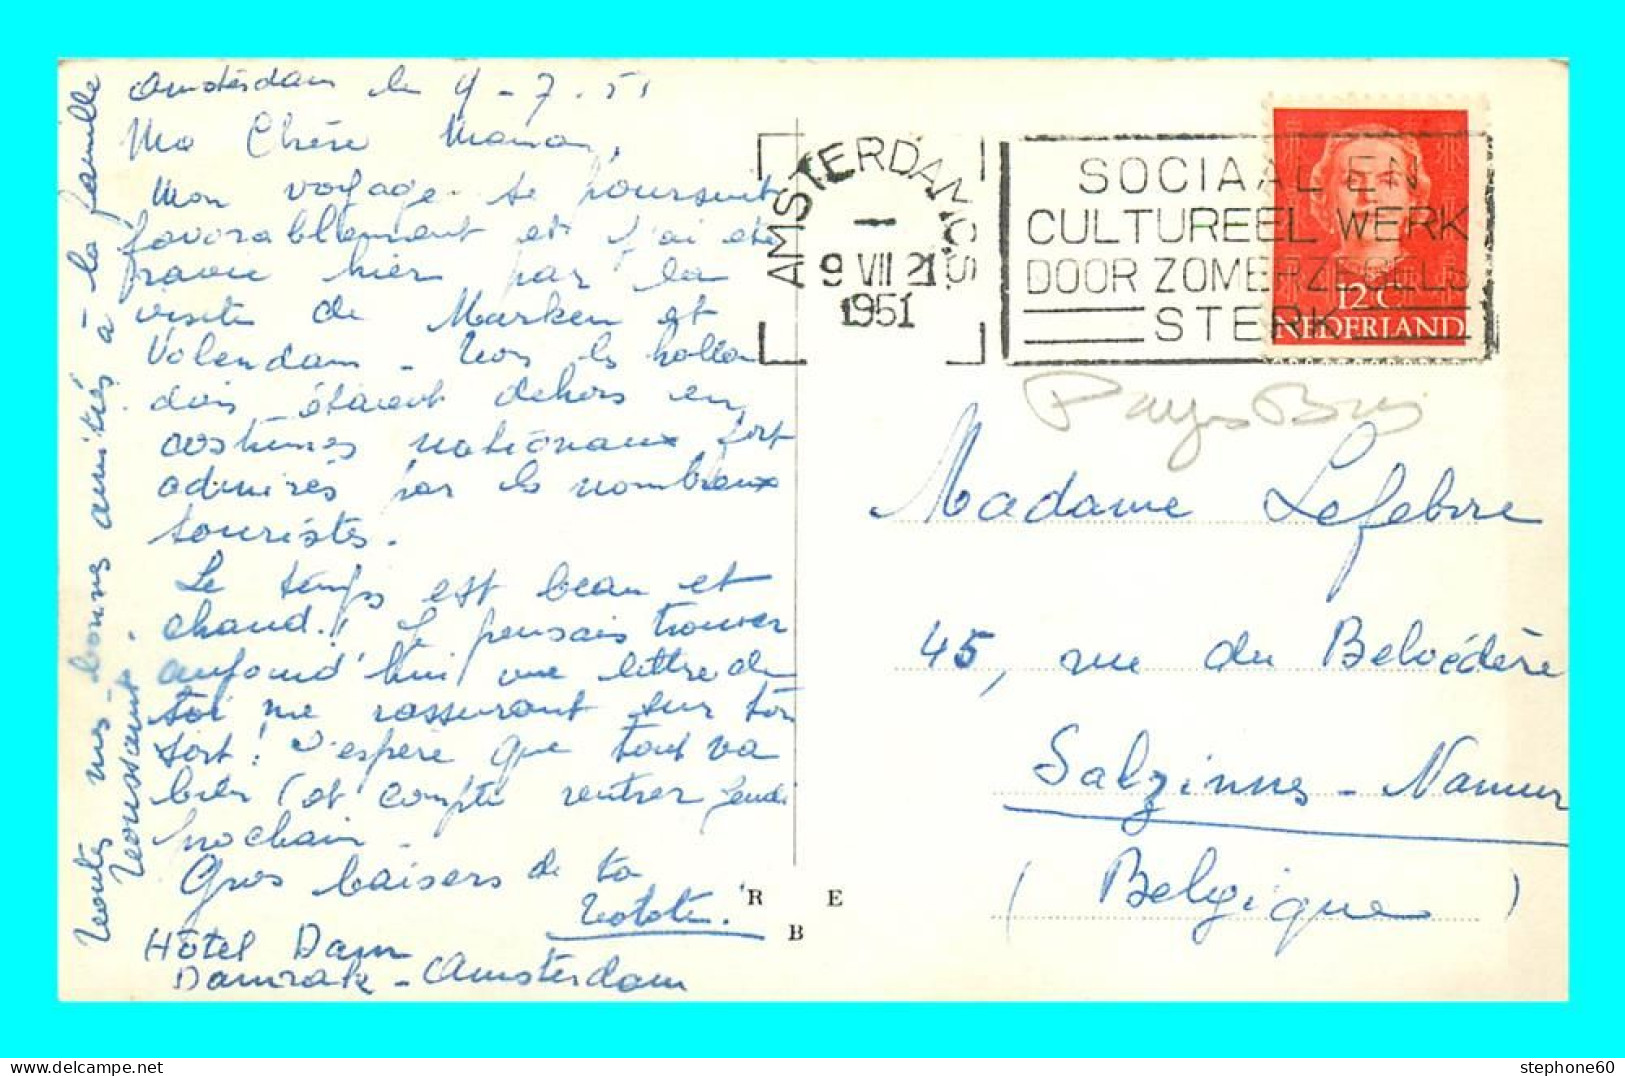 Amsterdam le 9-7-51
Ma Chère Maman,
Mon voyage se poursuit
favorablement et j'ai été
ravie hier par la
visite de Marken et
Volendam - Tous les hollan
dais étaient dehors en
costumes nationaux fort
admirés par les nombreux
touristes.
Le temps est beau et
chaud. Je pensais trouver
aujourd'hui une lettre de
toi me rassurant sur ton
sort! J'espère que tout va
bien et compte rentrer jeudi
prochain -
Gros baisers de ta
Totote.
Hôtel Dam
Damrak - Amsterdam
Toutes nos bonnes amitiés à la famille
Toussaint.
AMSTERDAM C.S.
9 VII 21
1951
SOCIAAL EN
CULTUREEL WERK
DOOR ZOMERZEGELS
STERK
12 C
NEDERLAND
Pays Bas
Madame Lefebvre
45, rue du Belvédère
Salzinnes - Namur
(Belgique)
R E
B
stephone60